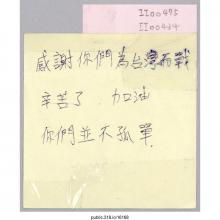 II00475
II00434
感謝你們為台灣而戰
辛苦了 加油
你們並不孤單.
public.318.io/16168